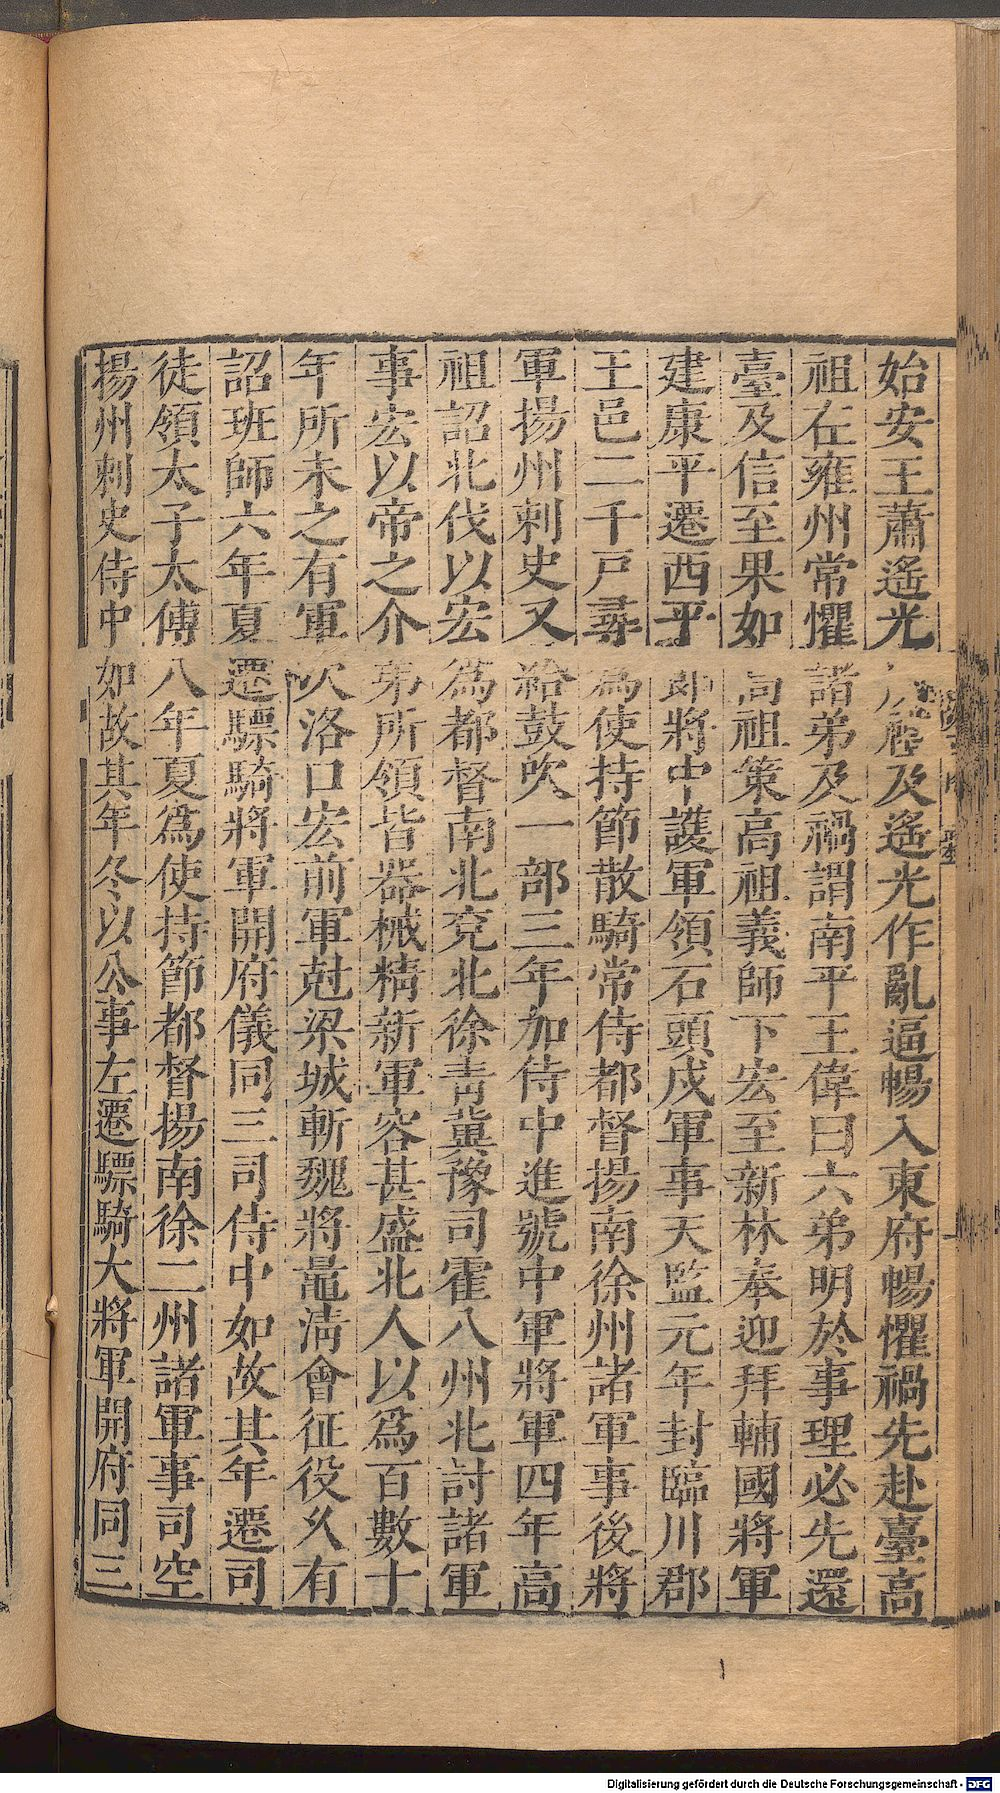 始安王蕭遙光
及遙光作亂逼暢入東府暢懼禍先赴臺高
祖在雍州常懼諸弟及禍謂南平王偉曰六弟明於事理必先還
臺及信至果如高祖策高祖義師下宏至新林奉迎拜輔國將軍
建康平遷西平郎將中護軍領石頭戍軍事天監元年封臨川郡
王邑二千戸尋為使持節散騎常侍都督揚南徐州諸軍事後將
軍揚州刺史又給鼓吹一部三年加侍中進號中軍將軍四年高
祖詔北伐以宏為都督南北兗北徐青冀豫司霍八州北討諸軍
事宏以帝之介弟所領皆器械精新軍容甚盛北人以爲百數十
年所未之有軍次洛口宏前軍剋梁城斬魏將鼂淸會征役久有
詔班師六年夏遷驃騎將軍開府儀同三司侍中如故其年遷司
徒領太子太傅八年夏爲使持節都督揚南徐二州諸軍事司空
揚州刺史侍中如故其年冬以公事左遷驃騎大將軍開府同三
Digitalisierung gefördert durch die Deutsche Forschungsgemeinschaft - DFG